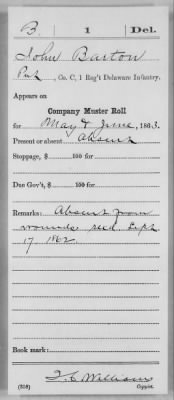 B | 1 | Del.
John Barton
Pvt, Co. C, 1 Reg't Delaware Infantry.
Appears on
Company Muster Roll
for May & June, 1863.
Present or absent Absent
Stoppage, $ 100 for
Due Gov't, $ 100 for
Remarks: Absent from
wounds recd Sept
17, 1862.
Book mark:
Williams
(358) Copyist.